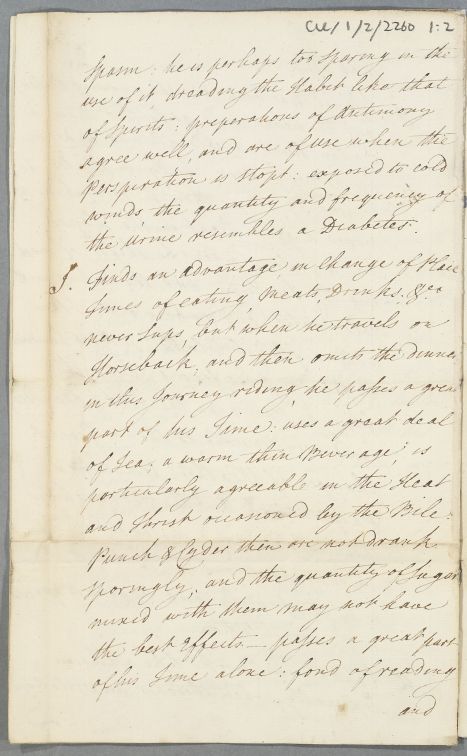 CUL/1/2/2260 1:2
Spasm: he is perhaps too sparing in the
use of it, dreading the Habit like that
of Spirits: preperations of Antimony
agree well, and are of use when the
Perspiration is stopt: exposed to cold
winds, the quantity and frequency of
the Urine resembles a Diabetes.
Finds an advantage in Change of Place
Times of eating, Meats, Drinks. &ca
never Sups, but when he travels on
Horseback, and then omits the dinner
in this Journey riding he passes a grea
part of his Time: uses a great deal
of Tea; a warm thin Beverage, is
particularly agreeable in the Heat
and Thirst occasioned by the Bile:
Punch & Cyder then are not drank
sparingly, and the quantity of Sugar
mixed with them may not have
the best Effects— passes a great part
of his Time alone: fond of reading
and